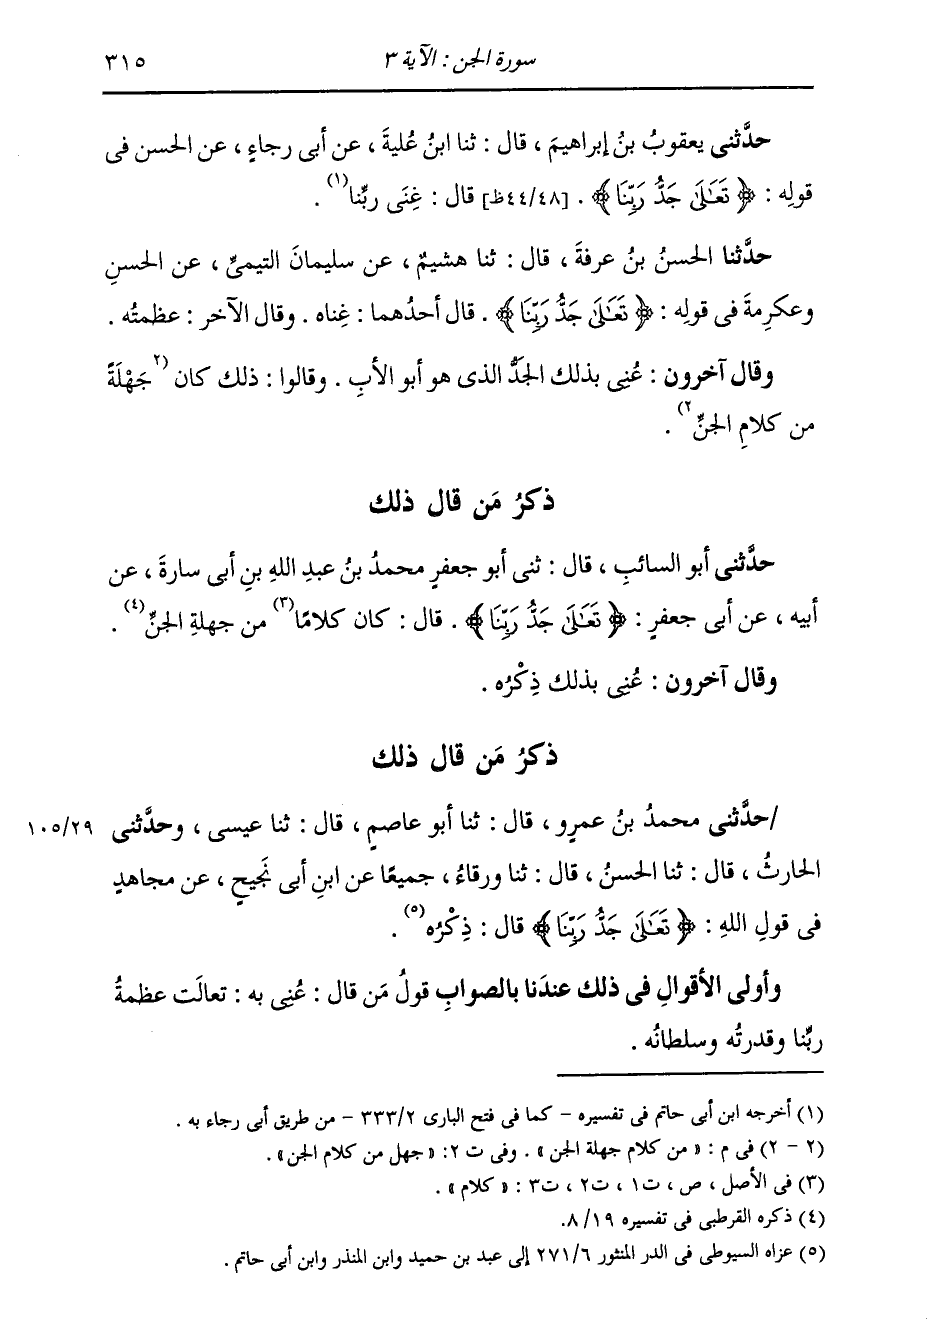 سورة الجن : الآية ٣
٣١٥
حدَّثنى يعقوبُ بنُ إبراهيمَ ، قال : ثنا ابنُ عُليةَ ، عن أبى رجاءٍ ، عن الحسن فى
قولِه : ﴿ تَعَالَىٰ جَدُّ رَبِّنَا ﴾ . [٤٤/٤٨ظ] قال : غِنَى ربِّنا(١) .
حدَّثنا الحسنُ بنُ عرفةَ ، قال : ثنا هشيمٌ ، عن سليمانَ التيمىِّ ، عن الحسنِ
وعكرِمةَ فى قولِه : ﴿ تَعَالَىٰ جَدُّ رَبِّنَا ﴾ . قال أحدُهما : غِناه . وقال الآخر : عظمتُه .
وقال آخرون : عُنِى بذلك الجَدُّ الذى هو أبو الأبِ . وقالوا : ذلك كان (٢ جَهْلَةً
من كلامِ الجنِّ ٢) .
ذكرُ مَن قال ذلك
حدَّثنى أبو السائبِ ، قال : ثنى أبو جعفرٍ محمدُ بنُ عبدِ اللهِ بنِ أبى سارةَ ، عن
أبيه ، عن أبى جعفرٍ : ﴿ تَعَالَىٰ جَدُّ رَبِّنَا ﴾ . قال : كان كلامًا(٣) من جهلةِ الجنِّ(٤) .
وقال آخرون : عُنِى بذلك ذِكْرُه .
ذكرُ مَن قال ذلك
/حدَّثنى محمدُ بنُ عمرٍو ، قال : ثنا أبو عاصمٍ ، قال : ثنا عيسى ، وحدَّثنى ١٠٥/٢٩
الحارثُ ، قال : ثنا الحسنُ ، قال : ثنا ورقاءُ ، جميعًا عن ابنِ أبى نَجيحٍ ، عن مجاهدٍ
فى قولِ اللهِ : ﴿ تَعَالَىٰ جَدُّ رَبِّنَا ﴾ قال : ذِكْرُه(٥) .
وأولى الأقوالِ فى ذلك عندَنا بالصوابِ قولُ مَن قال : عُنِى به : تعالَت عظمةُ
ربِّنا وقدرتُه وسلطانُه .
(١) أخرجه ابن أبى حاتم فى تفسيره - كما فى فتح البارى ٣٣٣/٢ - من طريق أبى رجاء به .
(٢ - ٢) فى م : « من كلام جهلة الجن » . وفى ت ٢: « جهل من كلام الجن » .
(٣) فى الأصل ، ص ، ت١ ، ت٢ ، ت٣ : « كلام » .
(٤) ذكره القرطبى فى تفسيره ٨/١٩.
(٥) عزاه السيوطى فى الدر المنثور ٢٧١/٦ إلى عبد بن حميد وابن المنذر وابن أبى حاتم .